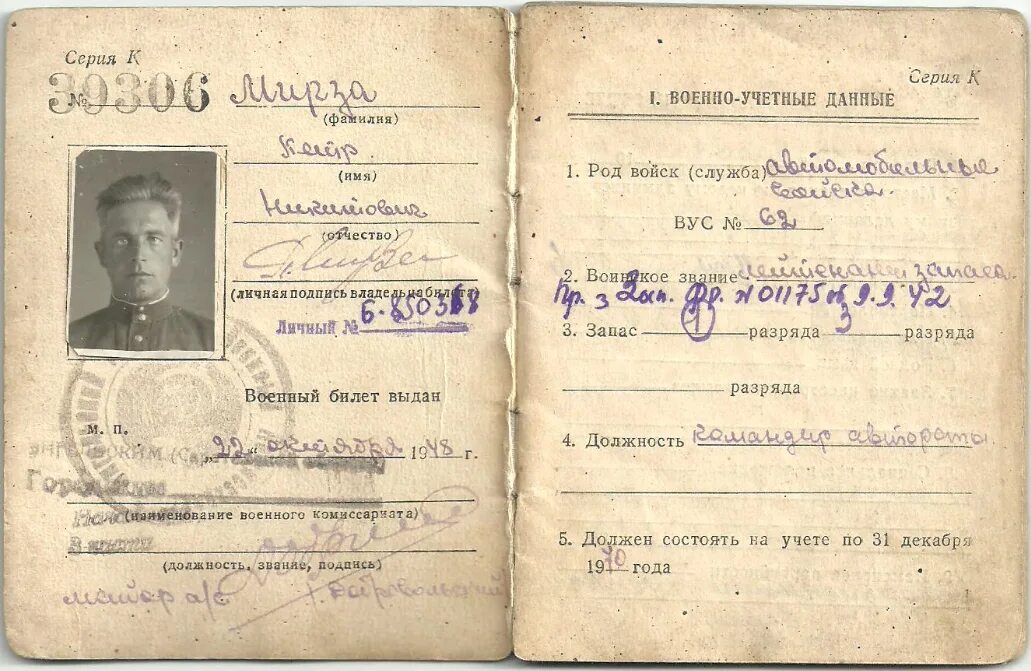 Серия К
№ 39306
Мирза
(фамилия)
Петр
(имя)
Никитович
(отчество)
(личная подпись владельца билета)
Личный №
Военный билет выдан
м. п.
„22“ октября 1948 г.
Энгельсским
(наименование военного комиссариата)
(должность, звание, подпись)
майор а/с Добровольский
Серия К
I. ВОЕННО-УЧЕТНЫЕ ДАННЫЕ
1. Род войск (служба) автомобильные
войска.
ВУС № 62
2. Воинское звание лейтенант запаса.
Пр. 3 № 01175 9.9.42
3. Запас 1 разряда 3 разряда
разряда
4. Должность командир автороты.
5. Должен состоять на учете по 31 декабря
1970 года